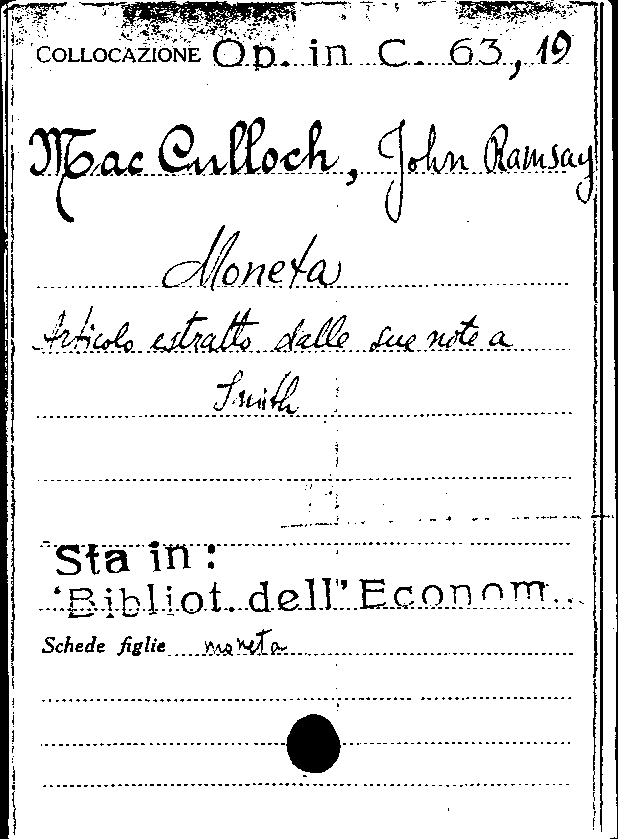 COLLOCAZIONE Op. in C. 63, 19
Mac Culloch, John Ramsay
Moneta
Articolo estratto dalle sue note a
Smith
Sta in :
"Bibliot. dell' Econom...
Schede figlie moneta